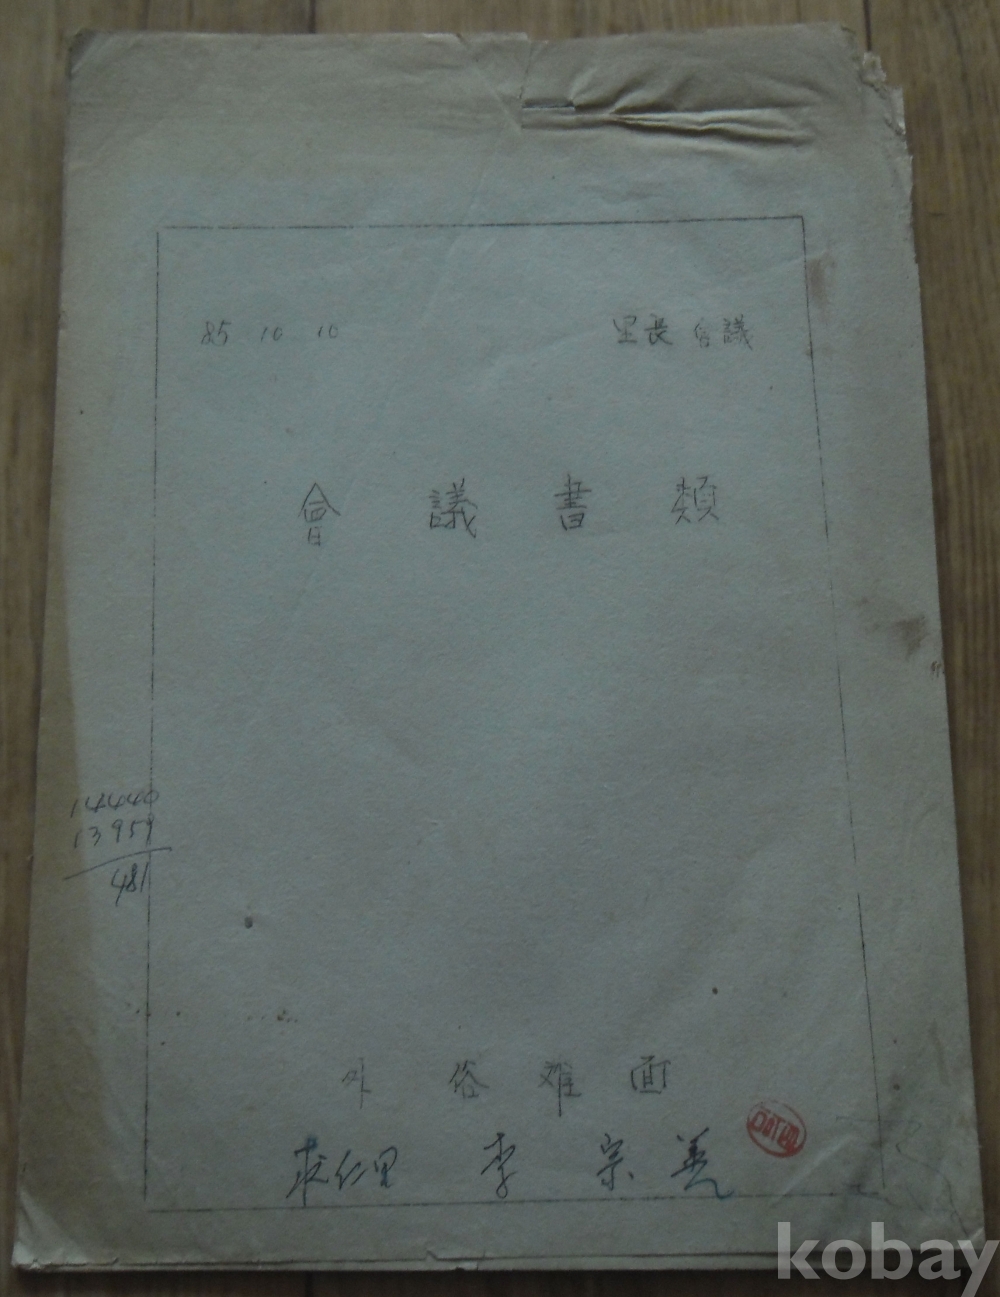 85 10 10 里長 會議
會議書類
14440
13959
481
外俗離面
求仁里 李宗善
kobay